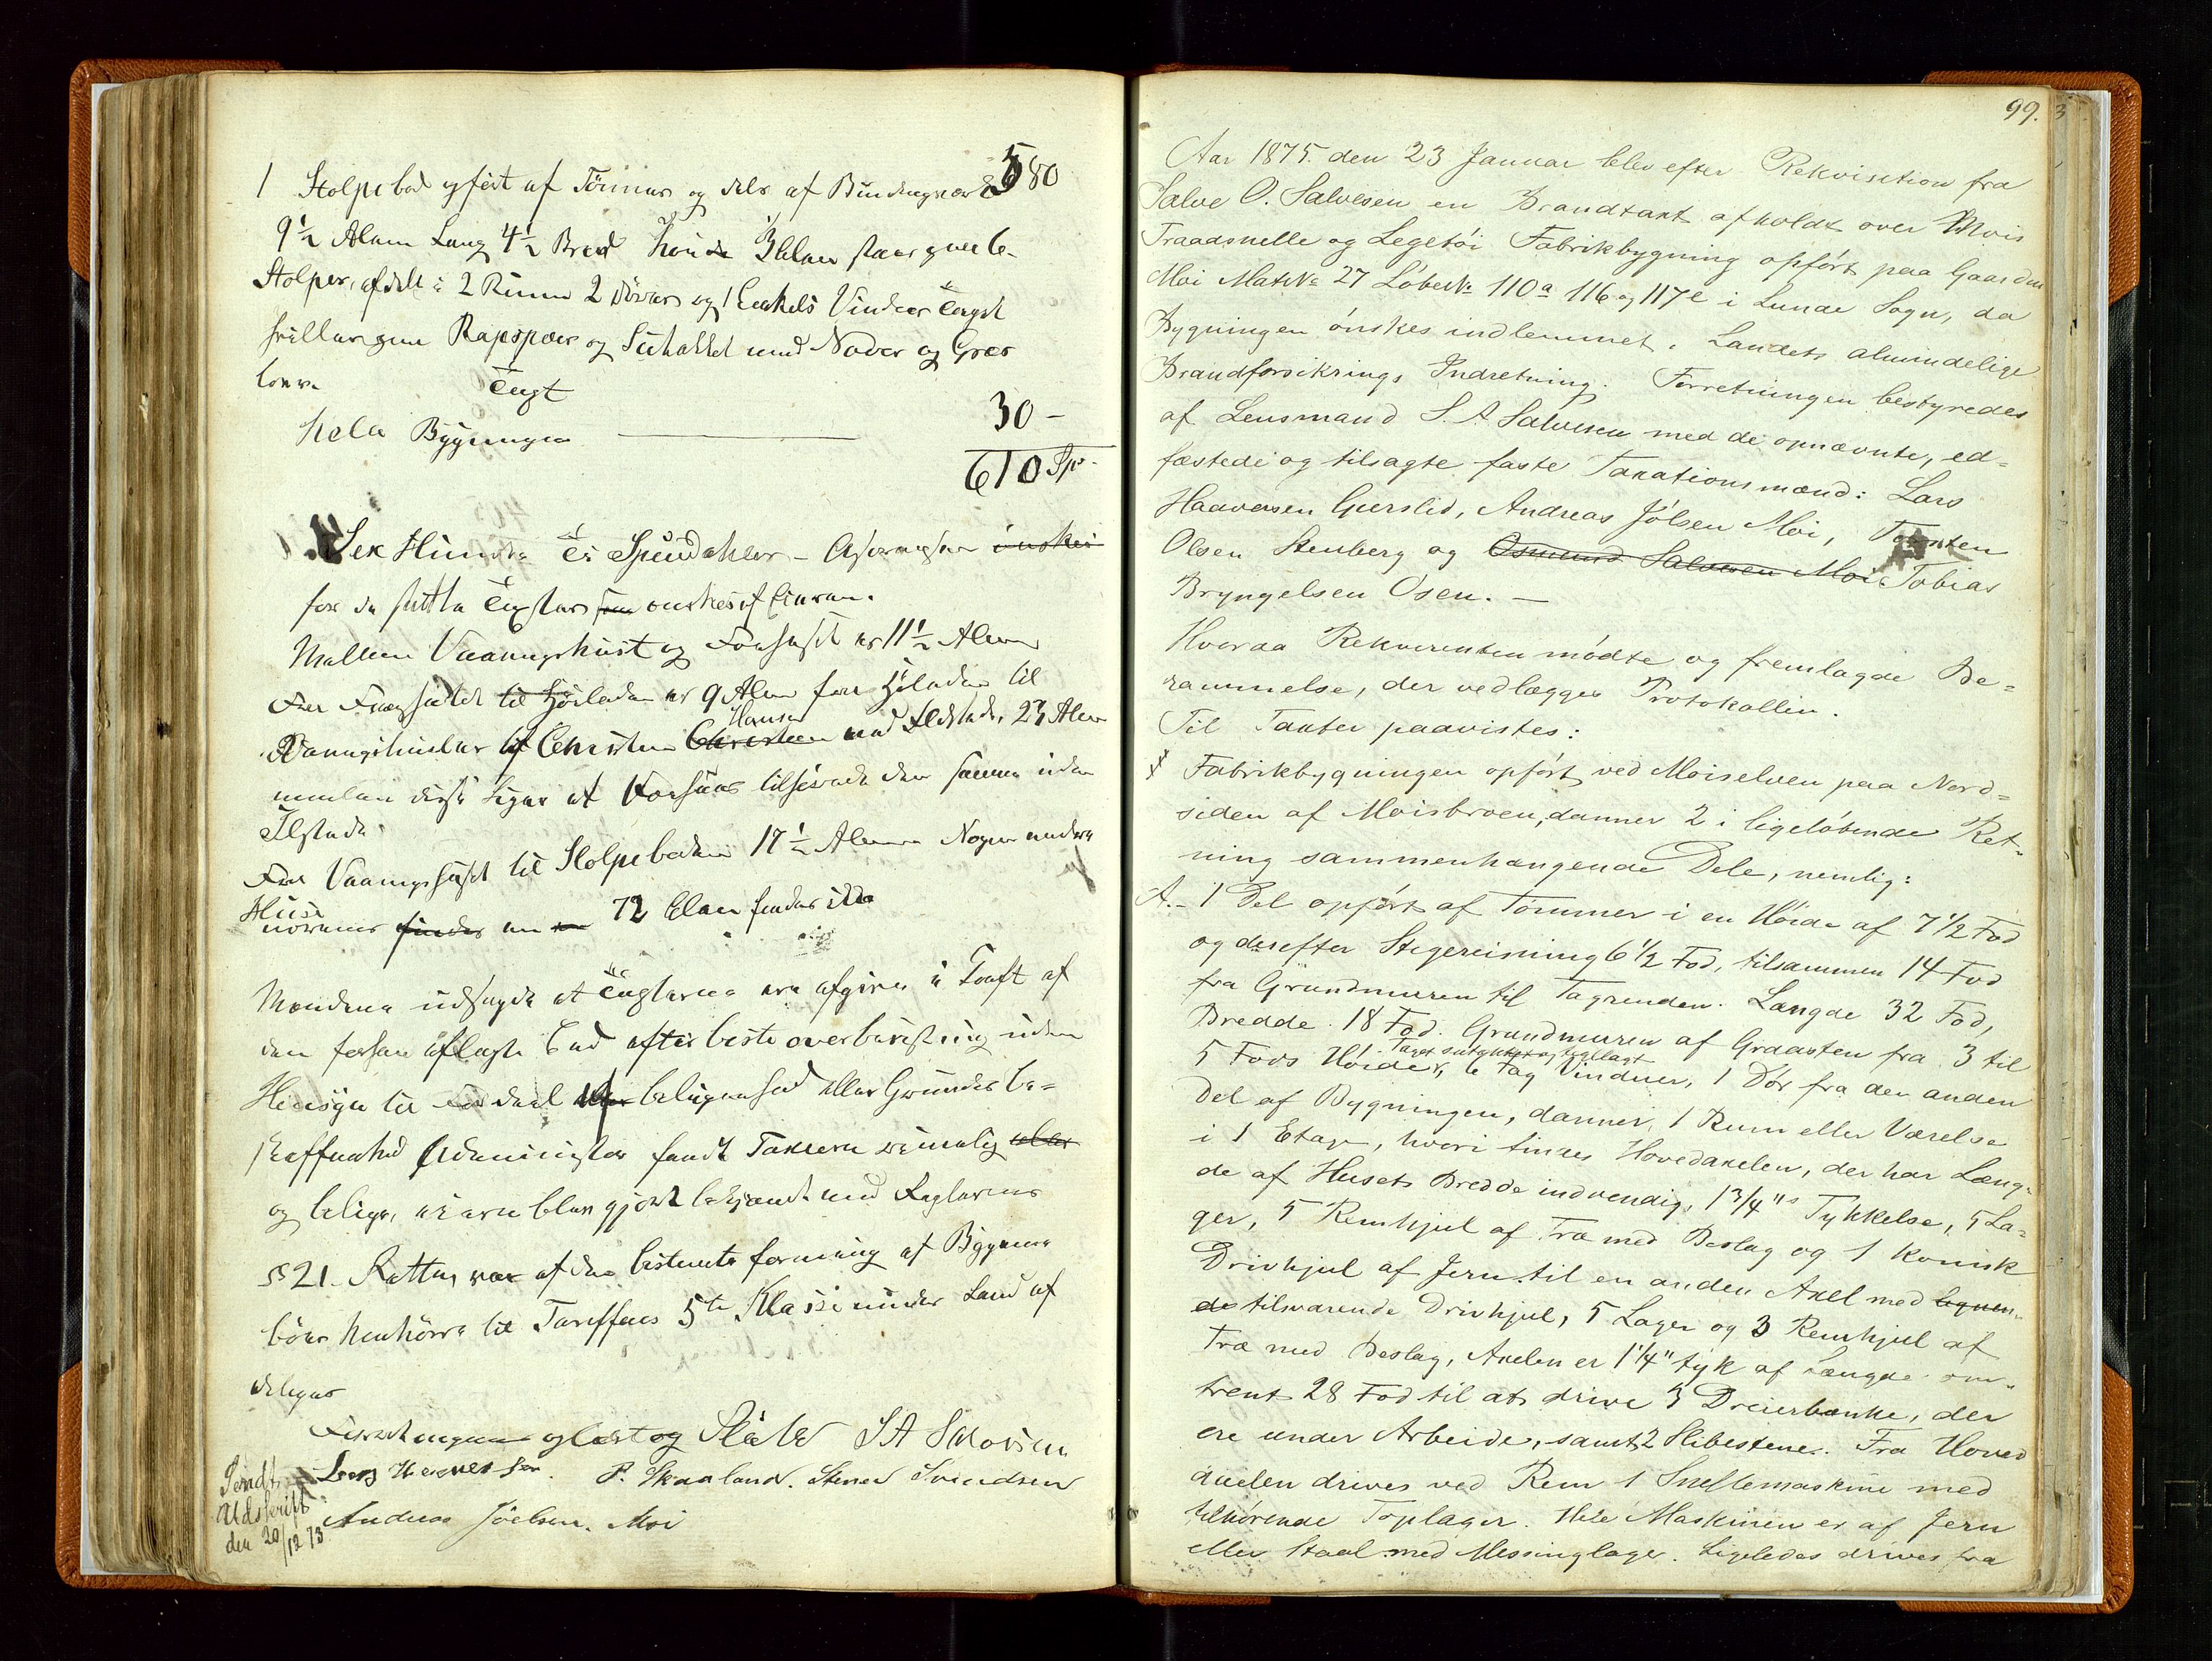 580
1 Stolpebod opført af Tømmer og dels af Bindingværk
9½ Alen Lang 4½ Bred 3 Alen staar paa 6
Stolper, afdelt i 2 Rum 2 Dører og 1 Enkels Vindue Tagt
Rapspær og Sutakket med Næver og
Taxt
hele Bygningen — 30 –
610 Sp
Sex Hundre Ti Speciedaler – Assurancen ønskes
for de satte Taxter som ønskes af Eieren.
Mellem Vaaningshuset og Fæhuset er 11½ Alen
Fra Fæhuset til Høiladen er 9 Alen fra Høladen til
Hansen
Vaaningshuset til Christen Christen med Ildsteder 23 Alen
imellem disse ligger et Fæhuus tilhørende den samme uden
Ilsteder
Fra Vaaningshuset til Stolpeboden 17½ Alen Nogen andre
Huse
nærmere findes en 72 Alen findes ikke
Mændene udsagde at Taxterne ere afgivne i Kraft af
den forhen aflagte Eed efter beste overbevisning uden
Hensyn til beliggenhed eller Grundes be-
skaffenhed fandt Taxterne rimelig eller
og billige, blev gjort bekjendt med Reglernes
§ 21. Retten var af den bestemte formening af Bygningerne
bør henhøre til Tariffens 5te Klasse under Land af
deliger
Forretningen oplæst og Slutted S A Salvesen
Lars Haaversen. P. Skaaland. Stener Svendsen
Andreas Jóelsen. Moi
Sendt
Udskrift
den 20/12 73
99.
Aar 1875. den 23 Januar blev efter Rekvisition fra
Salve O. Salvesen en Brandtaxt afholdt over Mois
Traadsnelle og Legetöi Fabrikbygning opført paa Gaarden
Moi Mat№ 27 Löbe№ 110a 116 og 117e i Lunde Sogn, da
Bygningen önskes indlemmet i Landets almindelige
Brandforsikrings Indretning. Forretningen bestyredes
af Lensmand S. A Salvesen med de opnævnte, ed-
fæstede og tilsagte faste Taxationsmænd: Lars
Haaversen Gverslid, Andreas Jölsen Moi, Torsten
Olsen Stenberg og Osmund Salvesen Moi Tobias
Bryngelsen Osen. —
Hvorda Rekvirenten mödte og fremlagde Be-
rammelse, der vedlægges Protokollen.
Til Taxter paavistes:
Fabrikbygningen opført ved Moiselven paa Nord-
siden af Moisbroen, danner 2 i ligelöbende Ret-
ning sammenhængende Dele, nemlig:
A. – 1 Del opført af Tømmer i en Höide af 7½ Fod
og derefter Stegreisning 6½ Fod, tilsammen 14 Fod
fra Grundmuren til Tagrenden. Længde 32 Fod,
Bredde 18 Fod. Grundmuren af Graasten fra 3 til
Taget sutakket og tegllagt
5 Fods Höide, 6 Fag Vinduer, 1 Dör fra den anden
Del af Bygningen, danner 1 Rum eller Værelse
i 1 Etage, hvori findes Hovedaxelen, der har Læng-
de af Husets Bredde indvendig, 1¾" Tykkelse, 5 La-
ger, 5 Remhjul af Træ med Beslag og 1 konisk
Drivhjul af Jern til en anden Axel med lignen-
de tilsvarende Drivhjul, 5 Lager og 3 Remhjul af
Træ med Beslag, Axelen er 1¼" tyk af Længde om-
trent 28 Fod til at drive 3 Dreierbænke, der
ere under Arbeide, samt 2 Slibestene. Fra Hoved
axelen drives ved Rem 1 Snellemaskine med
tilhörende Toplager. Hele Maskinen er af Jern
eller Staal med Messinglager. Ligeledes drives fra